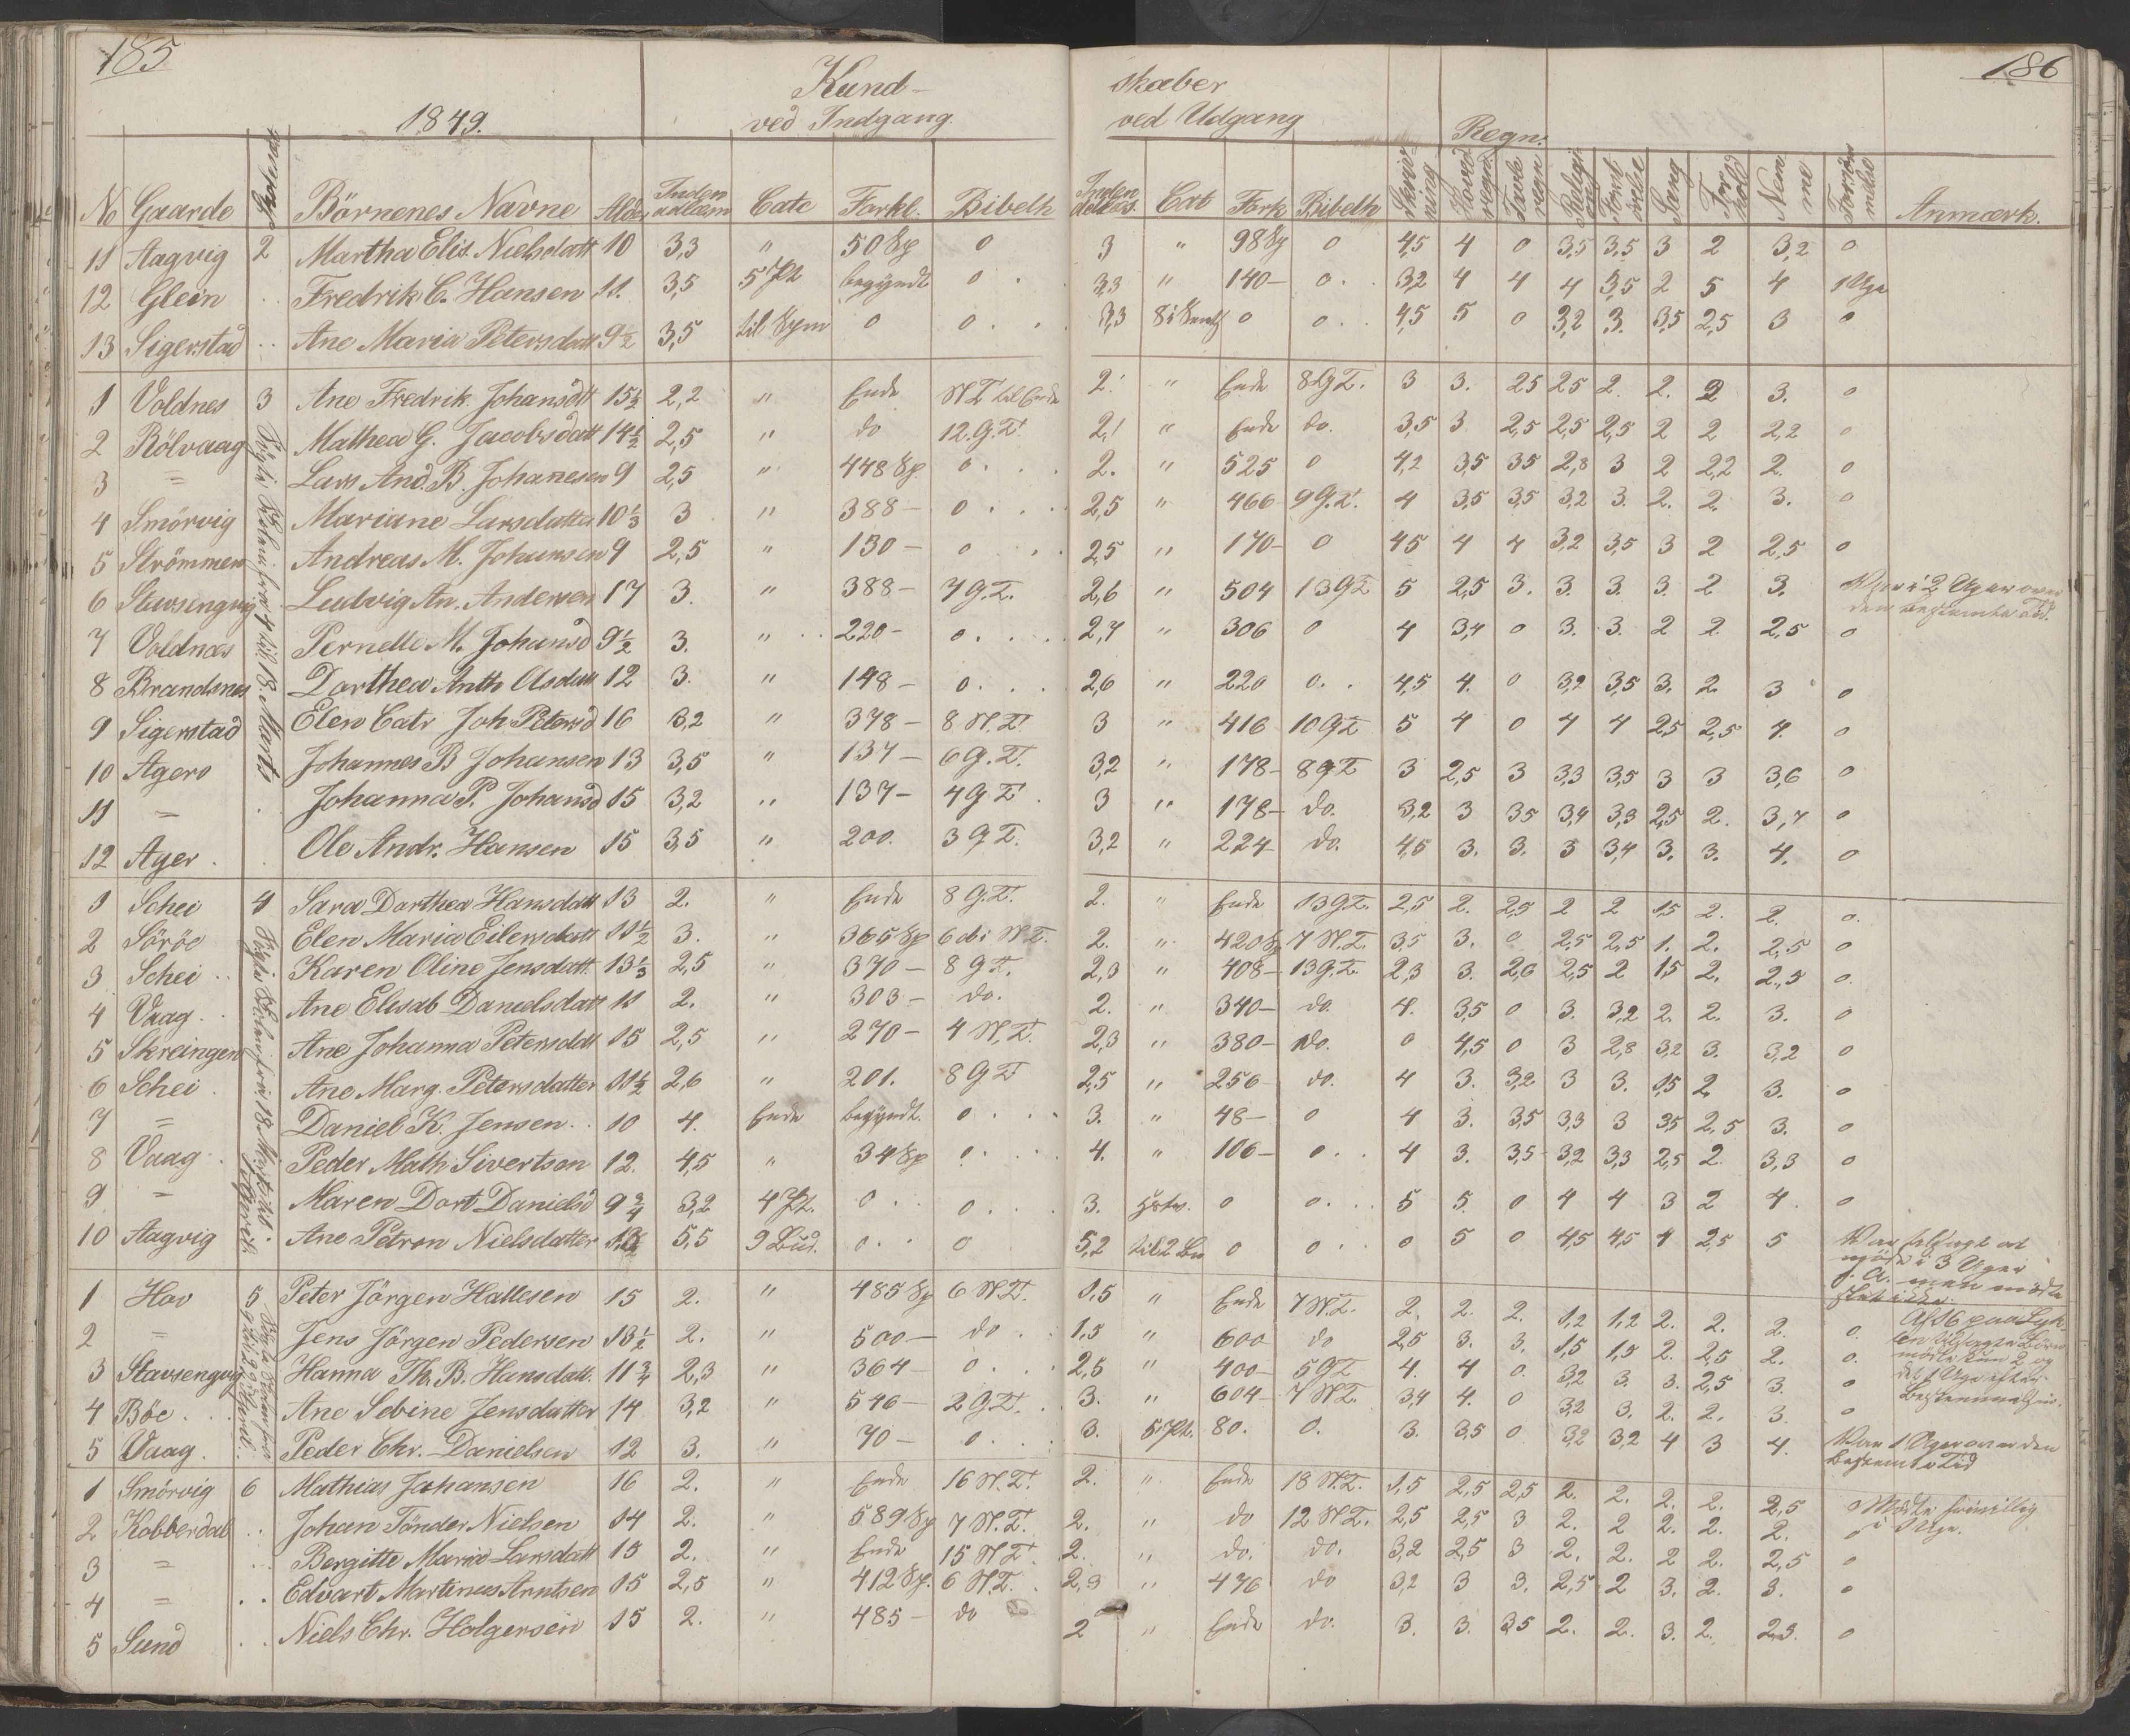 185
186
1849.
Kund-
skaber
ved Indgang
ved Udgang
Regn.
No Gaarde Børnenes Navne Alder Inden adlæsn Cate Forkl. Bibelh Cat Fork Bibelh Skriv- ning Hoved regn. Tavle regn Religi on Sang For hold Nem me Forsøm melse Anmærk.
11 Aagvig 2 Martha Elis. Nielsdatt 10 3,3 " 50 Sp 0 3 " 98 Sp 0 4,5 4 0 3,5 3,5 3 2 3,2 0
12 Glein Fredrik C. Hansen 11. 3,5 5 Pt begyndt 0 3,3 " 140- 0 3,2 4 4 4 3,5 2 5 4 1 Uge
13 Sigerstad Ane Maria Petersdatt 9½ 3,5 til Sym 0 0 3,3 0 0 4,5 5 0 3,2 3. 3,5 2,5 3 0
1 Voldnes 3 Ane Fredrik. Johansdtt 15½ 2,2 " Ende N T til Ende 2 " Ende 8 G T. 3 3. 25 25 2. 2. 2 3. 0
2 Rölvaag Mathea G. Jacobsdatt 14½ 2,5 " do 12. G. T. 2,1 " Ende do. 3,5 3 2,5 2,5 2,5 2 2 2,2 0
3 = Lars And. B. Johanesen 9 2,5 " 448 Sp. 0 2. " 525 0 4,2 3,5 35 2,8 3 2 2,2 2. 0
4 Smörvig Mariane Larsdatter 10⅓ 3 " 388- 0 2,5 " 466 9 G. T. 4 3,5 3,5 3,2 3. 2. 2. 3. 0
5 Strömmen Andreas M. Johansen 9 2,5 " 130- 0 2,5 " 170- 0 45 4 4 3,2 3,5 3 2 2,5 0
6 Stavsengvig Ludvig An. Andersen 17 3. " 388- 7 G. T. 2,6 " 504 13 G T 5 2,5 3. 3. 3. 3. 2 3. Var i 2 Uger over
den bestemte Tid.
7 Voldnæs Pernelle M. Johansd 9½ 3. " 220- 0 2,7 " 306 0 4 3,4 0 3. 3. 2 2 2,5 0
8 Brandsnes Dorthea Anth Olsdatt 12 3. " 148- 0 2,6 " 220 0 4,5 4. 0 3,2 3,5 3. 2. 3 0
9 Sigerstad Elen Catr Joh. Petersd 16 3,2 " 378- 8 N. T. 3 " 416 10 G T 5 4 0 4 4 2,5 2,5 4. 0
10 Agerö Johannes B Johansen 13 3,5 " 137- 6 G. T. 3,2 " 178- 8 G T 3 2,5 3 3,3 3,5 3 3 3,6 0
11 = Johanna P. Johansd 15 3,2 " 137- 4 G T 3 " 178- do. 3,2 3 35 3,4 3,3 2,5 2. 3,7 0
12 Ager Ole Andr. Hansen 15 3,5 " 200. 3 G T. 3,2 " 224 do. 4,5 3. 3. 3 3,4 3. 3. 4. 0
1 Schei 4 Sara Dorthea Hansdatt 13 2. " Ende 8 G. T. 2. " Ende 13 G. T. 2,5 2. 2,5 2 2 1,5 2. 2. 0.
2 Söröe Elen Maria Eilersdatt 11½ 3. " 365 Sp 6 do i N. T. 2. " 420 Sp 7 N. T. 3,5 3. 0 2,5 2,5 1. 2. 2,5 0
3 Schei Karen Oline Jensdatt. 13⅓ 2,5 " 370- 8 G T. 2,3 " 408- 13 G. T. 2,3 3. 2,6 2,5 2 1,5 2. 2,5 0.
4 Vaag Ane Elisab Danielsdatt 11 2. " 303- do. 2. " 340- do. 4. 3,5 0 3. 3,2 2. 2. 3. 0
5 Skreingen Ane Johanna Petersdatt 15 2,5 " 270- 4 N. T. 2,3 " 380- do. 0 4,5 0 3 2,8 3,2 3. 3,2 0
6 Schei Ane Marg. Petersdatter 11½ 2,6 " 201. 8 G T 2,5 " 256 do. 4 3. 3,2 3 3. 1,5 2 3. 0
7 = Daniel K. Jensen 10 4. Ende begyndt. 0 3. " 48- 0 4 3. 3,5 3,3 3 3,5 2,5 3. 0
8 Vaag Peder Math Sivertsen 12. 4,5 " 34 Sp 0 4. " 106- 0 4 3. 3,5 3,2 3,3 2,5 2 3,3 0
9 = Maren Dort Danielsd 9¾ 3,2 4 Pt. 0 0 3. 0 0 5 5. 0 4 4 3 2 4. 0
10 Aagvig Ane Petron Nielsdatter 5,5 9 Bud. 0 0 5,2 til 2 Bu 0 0 0 5 0 4,5 4,5 4 2,5 5 Var tilsagt at
møde i 3 Uger
f. A. men mødte
slet ikke.
1 Hov 5 Peter Jörgen Hallesen 15 2. " 485 Sp 6 N. T. 1,5 " Ende 7 N. T. 2. 2. 2. 1,2 1,2 2. 2. 2. 0.
2 = Jens Jörgen Pedersen 13½ 2. " 500- do 1,5 " 600 do 2,5 3. 3. 1,5 1,5 2. 2,5 2. 0.
3 Stavsengvig Hanna Th. B. Hansdatt. 11¾ 2,3 " 364 0 2,5 " 400- 5 G T 4. 4 0. 3,2 3. 3. 2,5 3. 0
4 Böe Ane Sebine Jensdatter 14 3,2 " 546- 2 G T. 3. " 604- 7 N T. 3,4 4. 0 3,2 3. 2. 2. 3. 0
5 Vaag. Peder Chr. Danielsen 12 3. " 70- 0 3. 5 Pt. 80. 0. 3. 3,5 0 3,2 3,2 4 3 4. Var 1 Uge over den
bestemte Tid
1 Smörvig 6 Mathias Johansen 16 2. " Ende 16 N. T. 2. " Ende 18 N. T. 1,5 2,5 2,5 2. 2. 2. 2. 2,5 0
2 Kobberdal Johan Tönder Nielsen 14 2. " 589 Sp 7 N. T. 2. " do 12 N T. 2,5 2,5 3 2. 2 2. 2. 2. 0 Mødte frivillig
i 1 Uge.
3 = Bergitte Maria Larsdatt 15 2. " Ende 15 N T. 2. " do. do. 3,2 2,5 3 2. 2. 2 2. 2,5 0
4 = Edvart Martinus Arntsen 15 2,5 " 412 Sp. 6 N. T. 2,3 " 476 do 3,2 3 3. 2,5 2 3. 2. 3. 0
5 Sund Niels Chr. Holgersen 15 2. " 485- do 2 " Ende do. 3. 3. 3,5 2. 2. 3. 2. 2,3. 0